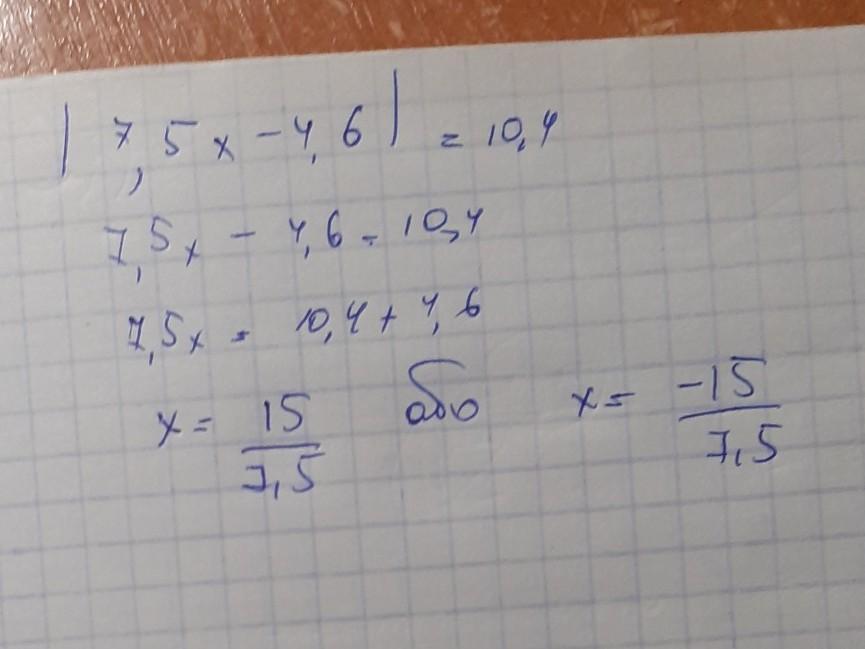 | 7,5x - 4,6 | = 10,4
7,5x - 4,6 = 10,4
7,5x = 10,4 + 4,6
x = 15/7,5 або x = -15/7,5